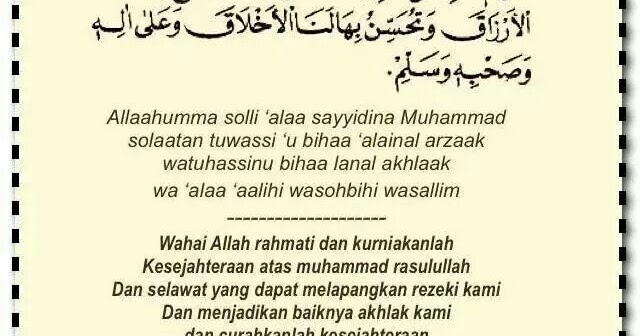 الْأَرْزَاقَ وَتُحَسِّنُ بِهَا لَنَا الْأَخْلَاقَ وَعَلَى اٰلِهٖ
وَصَحْبِهٖ وَسَلِّمْ.
Allaahumma solli ‘alaa sayyidina Muhammad
solaatan tuwassi ‘u bihaa ‘alainal arzaak
watuhassinu bihaa lanal akhlaak
wa ‘alaa ‘aalihi wasohbihi wasallim
--------------------
Wahai Allah rahmati dan kurniakanlah
Kesejahteraan atas muhammad rasulullah
Dan selawat yang dapat melapangkan rezeki kami
Dan menjadikan baiknya akhlak kami
dan curahkanlah kesejahteraan